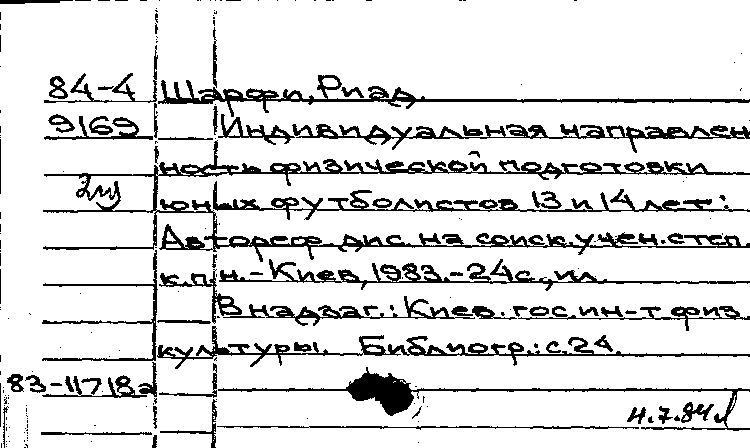 84-4 Шарфи, Риад.
9169 Индивидуальная направлен
ность физической подготовки
юных футболистов 13 и 14 лет:
Автореф. дис. на соиск. учен. степ.
к.п.н. - Киев, 1983. - 24 с., ил.
В надзаг.: Киев. гос. ин-т физ.
культуры. Библиогр.: с. 24.
83-11718а